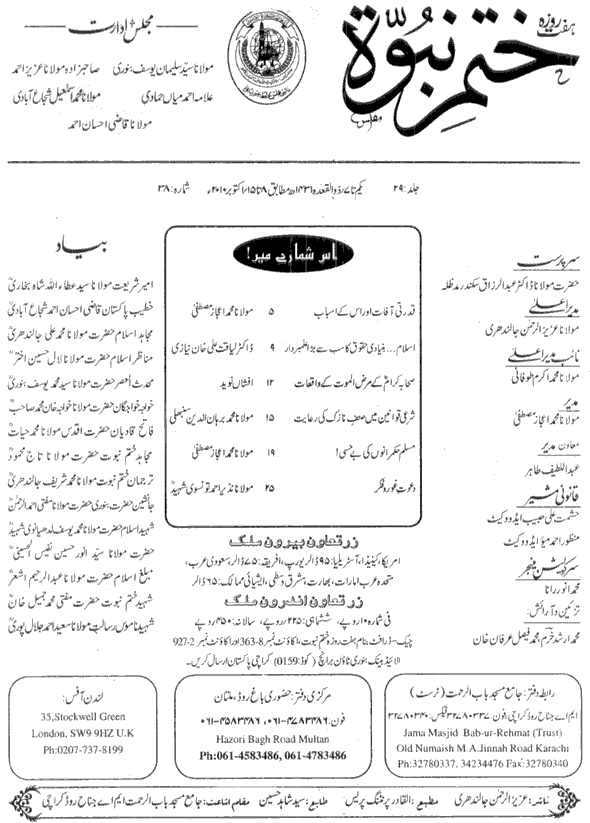 ہفت روزہ
ختم نبوۃ
مجلس ادارت
مولانا سید سلیمان یوسف بنوری صاحبزادہ مولانا عزیز احمد
علامہ احمد میاں حمادی مولانا محمد اسمٰعیل شجاع آبادی
مولانا قاضی احسان احمد
جلد: ۲۹ یکم تا ۷/ذوالقعدہ ۱۴۳۱ھ مطابق ۸ تا ۱۵/اکتوبر ۲۰۱۰ء شمارہ: ۳۸
سرپرست
حضرت مولانا ڈاکٹر عبدالرزاق سکندر مدظلہ
مدیر اعلیٰ
مولانا عزیز الرحمٰن جالندھری
نائب مدیر اعلیٰ
مولانا محمد اکرم طوفانی
مدیر
مولانا محمد اعجاز مصطفیٰ
معاون مدیر
عبداللطیف طاہر
قانونی مشیر
حشمت علی حبیب ایڈووکیٹ
منظور احمد میؤ ایڈووکیٹ
سرکولیشن منیجر
محمد انور رانا
تزئین و آرائش:
محمد ارشد خرم، محمد فیصل عرفان خان
اس شمارے میں!
قدرتی آفات اور اس کے اسباب ۵ مولانا محمد اعجاز مصطفیٰ
اسلام... بنیادی حقوق کا سب سے بڑا علمبردار ۹ ڈاکٹر لیاقت علی خان نیازی
صحابہ کرامؓ کے مرض الموت کے واقعات ۱۲ افشاں نوید
شرعی قوانین میں صنف نازک کی رعایت ۱۵ مولانا محمد برہان الدین سنبھلی
مسلم حکمرانوں کی بے حسی! ۱۹ مولانا محمد اعجاز مصطفیٰ
دعوت غور و فکر ۲۵ مولانا نذیر احمد تونسوی شہیدؒ
زر تعاون بیرون ملک
امریکا، کینیڈا، آسٹریلیا: ۹۵ ڈالر یورپ، افریقہ: ۷۵ ڈالر سعودی عرب،
متحدہ عرب امارات، بھارت، مشرق وسطیٰ، ایشیائی ممالک: ۶۵ ڈالر
زر تعاون اندرون ملک
فی شمارہ ۱۰ روپے، ششماہی: ۲۲۵ روپے، سالانہ: ۴۵۰ روپے
چیک - ڈرافٹ بنام ہفت روزہ ختم نبوت، اکاؤنٹ نمبر 8-363 اور اکاؤنٹ نمبر 2-927
الائیڈ بینک بنوری ٹاؤن برانچ (کوڈ: 0159) کراچی پاکستان ارسال کریں۔
بیاد
امیر شریعت مولانا سید عطاء اللہ شاہ بخاریؒ
خطیب پاکستان قاضی احسان احمد شجاع آبادیؒ
مجاہد اسلام حضرت مولانا محمد علی جالندھریؒ
مناظر اسلام حضرت مولانا لال حسین اخترؒ
محدث العصر حضرت مولانا سید محمد یوسف بنوریؒ
خواجہ خواجگان حضرت مولانا خواجہ خان محمد صاحبؒ
فاتح قادیان حضرت اقدس مولانا محمد حیاتؒ
مجاہد ختم نبوت حضرت مولانا تاج محمودؒ
ترجمان ختم نبوت حضرت مولانا محمد شریف جالندھریؒ
جانشین حضرت بنوری حضرت مولانا مفتی احمد الرحمٰنؒ
شہید اسلام حضرت مولانا محمد یوسف لدھیانوی شہیدؒ
حضرت مولانا سید انور حسین نفیس الحسینیؒ
مبلغ اسلام حضرت مولانا عبدالرحیم اشعرؒ
شہید ختم نبوت حضرت مفتی محمد جمیل خانؒ
شہید ناموس رسالت مولانا سعید احمد جلال پوریؒ
رابطہ دفتر: جامع مسجد باب الرحمت (ٹرسٹ)
ایم اے جناح روڈ کراچی، فون: ۳۲۷۸۰۳۳۷ فیکس: ۳۲۷۸۰۳۴۰
Jama Masjid Bab-ur-Rehmat (Trust)
Old Numaish M.A.Jinnah Road Karachi
Ph:32780337, 34234476 Fax:32780340
مرکزی دفتر: حضوری باغ روڈ، ملتان
فون: ۰۶۱-۴۷۸۳۴۸۶، ۰۶۱-۴۵۸۳۴۸۶
Hazori Bagh Road Multan
Ph:061-4583486, 061-4783486
لندن آفس:
35,Stockwell Green
London, SW9 9HZ U.K
Ph:0207-737-8199
ناشر: عزیز الرحمٰن جالندھری مطبع: القادر پرنٹنگ پریس طابع: سید شاہد حسین مقام اشاعت: جامع مسجد باب الرحمت ایم اے جناح روڈ کراچی